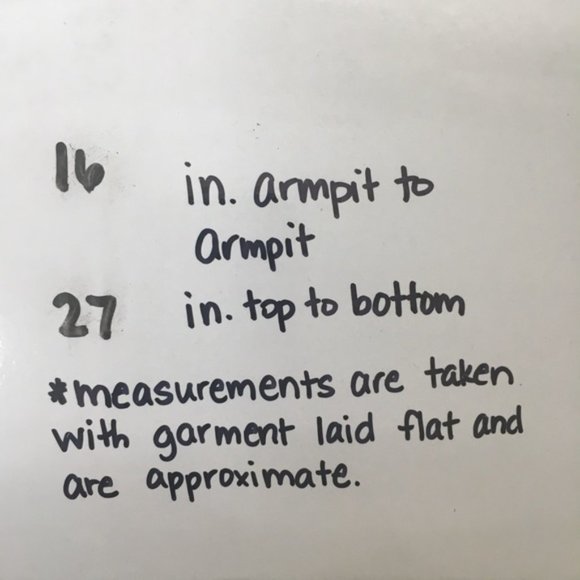 16 in. armpit to
armpit
27 in. top to bottom
*measurements are taken
with garment laid flat and
are approximate.